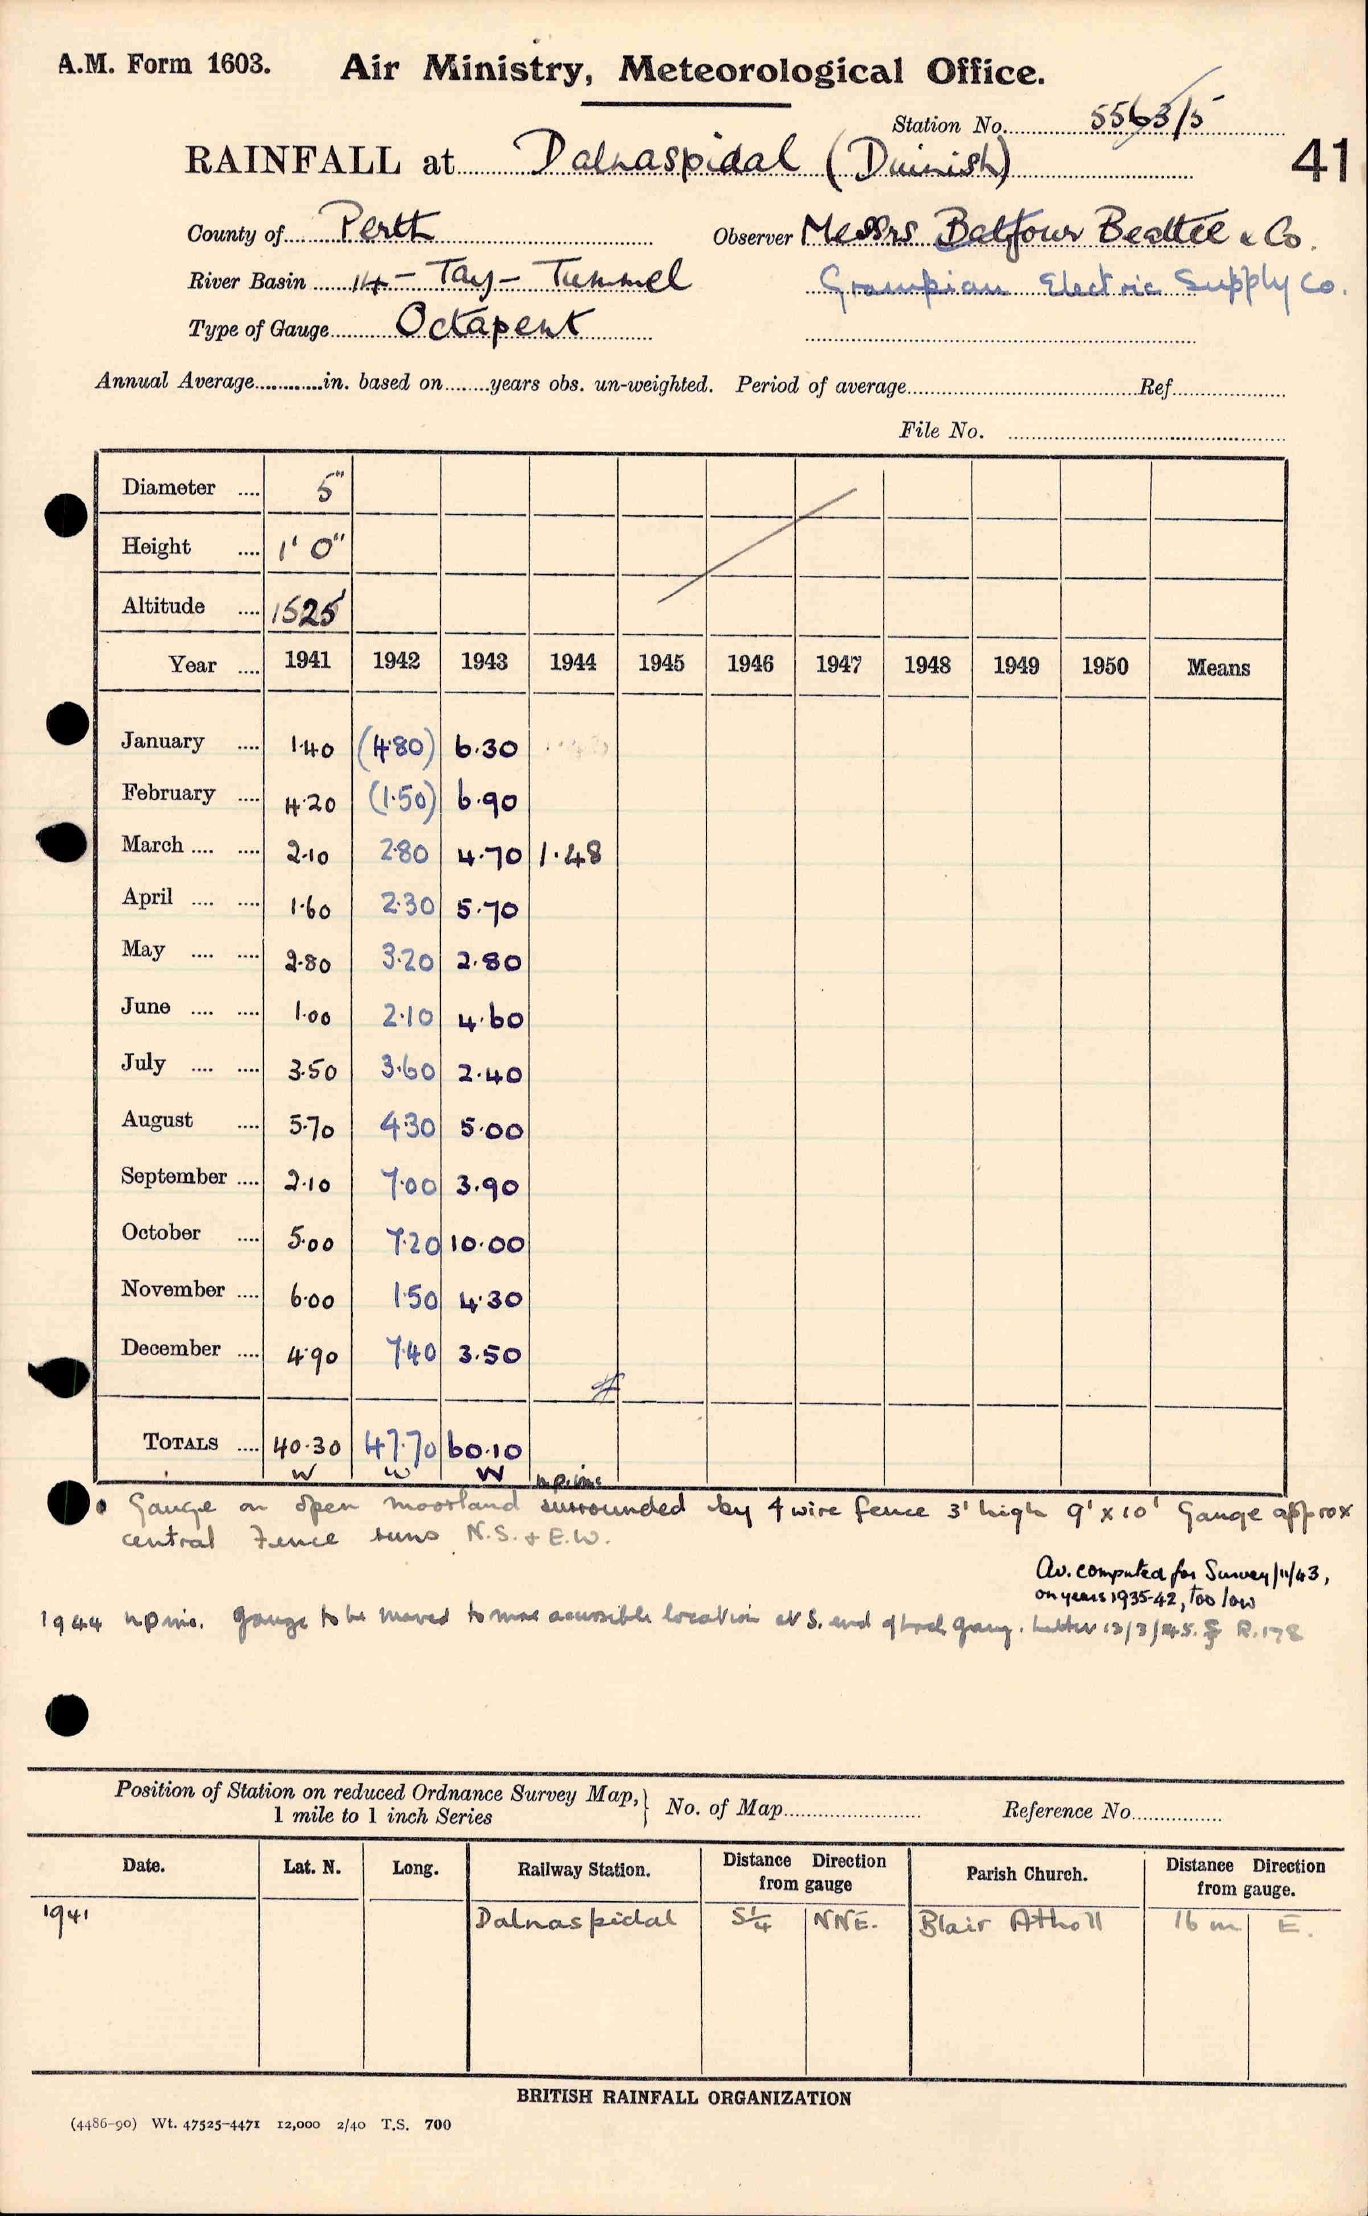 A.M. Form 1603. Air Ministry, Meteorological Office.
Station No. 5563/5
RAINFALL at Dalnaspidal (Duinish) 41
County of Perth Observer Messrs Balfour Beattie & Co.
River Basin 14 - Tay - Tummel Grampian Electric Supply Co.
Type of Gauge Octapent
Annual Average............in. based on.......years obs. un-weighted. Period of average Ref
File No.
Diameter .... 5"
Height .... 1' 0"
Altitude .... 1525'
Year .... 1941 1942 1943 1944 1945 1946 1947 1948 1949 1950 Means
January .... 1.40 (4.80) 6.30
February .... 4.20 (1.50) 6.90
March .... .... 2.10 2.80 4.70 1.48
April .... .... 1.60 2.30 5.70
May .... .... 2.80 3.20 2.80
June .... .... 1.00 2.10 4.60
July .... .... 3.50 3.60 2.40
August .... 5.70 4.30 5.00
September .... 2.10 7.00 3.90
October .... 5.00 7.20 10.00
November .... 6.00 1.50 4.30
December .... 4.90 7.40 3.50
TOTALS .... 40.30 47.70 60.10
W W W n.p. inc.
Gauge on open moorland surrounded by 4 wire fence 3' high 9' x 10' Gauge approx
central Fence runs N.S. & E.W.
Av. computed for Survey /11/43,
on years 1935-42, too low
1944 n.p inc. gauge to be moved to more accessible location at S. end of Loch Garry. Letter 13/3/45. R.178
Position of Station on reduced Ordnance Survey Map, } No. of Map Reference No.
1 mile to 1 inch Series
Date. Lat. N. Long. Railway Station. Distance Direction from gauge Parish Church. Distance Direction from gauge.
1941 Dalnaspidal 5¼ NNE. Blair Atholl 16 m E.
BRITISH RAINFALL ORGANIZATION
(4486-90) Wt. 47525-4471 12,000 2/40 T.S. 700